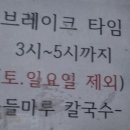 브레이크 타임
3시~5시까지
(토.일요일 제외)
들마루 칼국수-